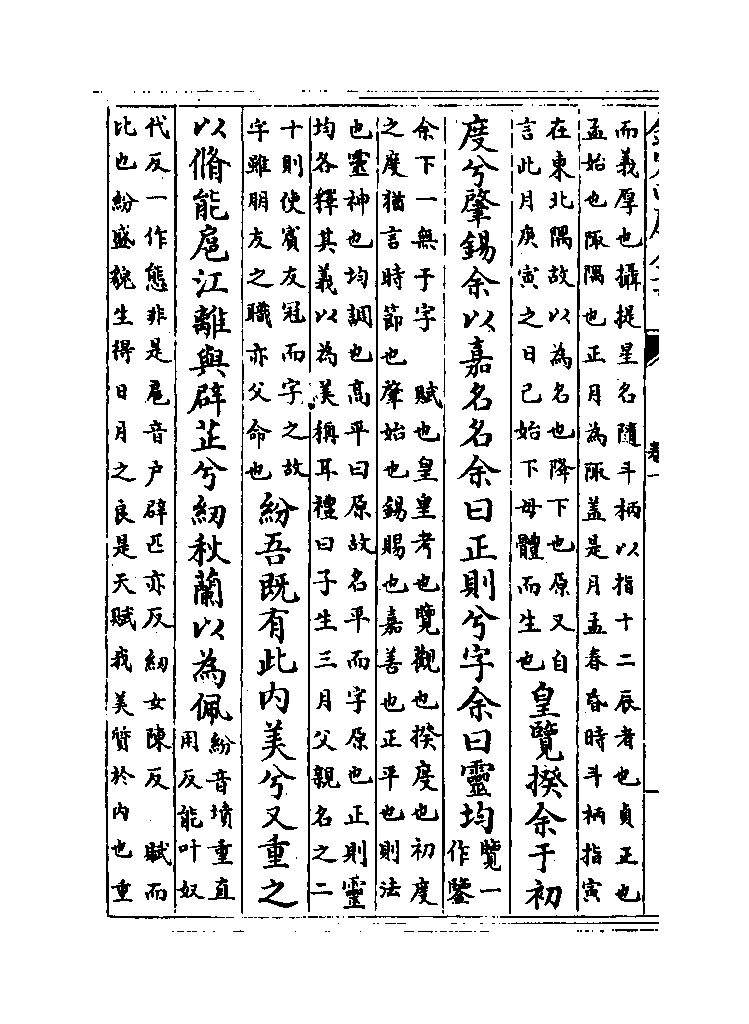 卷一
而義厚也攝提星名隨斗柄以指十二辰者也貞正也
孟始也陬隅也正月為陬蓋是月孟春昏時斗柄指寅
在東北隅故以為名也降下也原又自
言此月庚寅之日己始下母體而生也
皇覽揆余于初
度兮肇錫余以嘉名名余曰正則兮字余曰靈均
覽一
作鑒
余下一無于字　賦也皇皇考也覽觀也揆度也初度
之度猶言時節也肇始也錫賜也嘉善也正平也則法
也靈神也均調也高平曰原故名平而字原也正則靈
均各釋其義以為美稱耳禮曰子生三月父親名之二
十則使賓友冠而字之故
字雖朋友之職亦父命也
紛吾既有此内美兮又重之
以脩能扈江離與辟芷兮紉秋蘭以為佩
紛音墳重直
用反能叶奴
代反一作態非是扈音户辟匹亦反紉女陳反　賦而
比也紛盛貌生得日月之良是天賦我美質於内也重